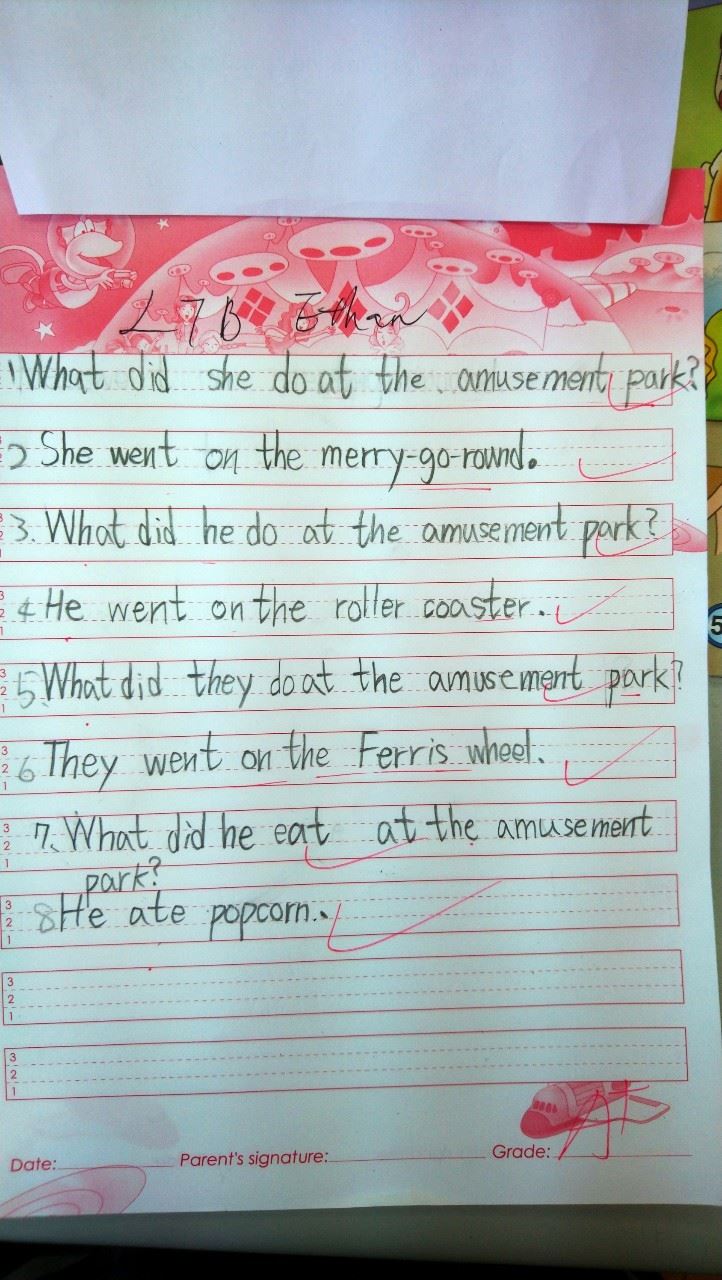 L7B Ethan
1 What did she do at the amusement park?
2 She went on the merry-go-round.
3. What did he do at the amusement park?
4 He went on the roller coaster.
5. What did they do at the amusement park?
6 They went on the Ferris wheel.
7. What did he eat at the amusement
park?
8 He ate popcorn.
3
2
1
3
2
1
Date: Parent's signature: Grade: A+
5